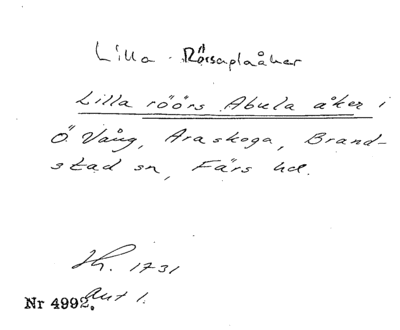 Lilla Rörsaplaåker
Lilla röörs Abula åker i
Ö. Vång, Araskoga, Brand-
stad sn, Färs hd.
Lh. 1731
Akt 1.
Nr 4992.